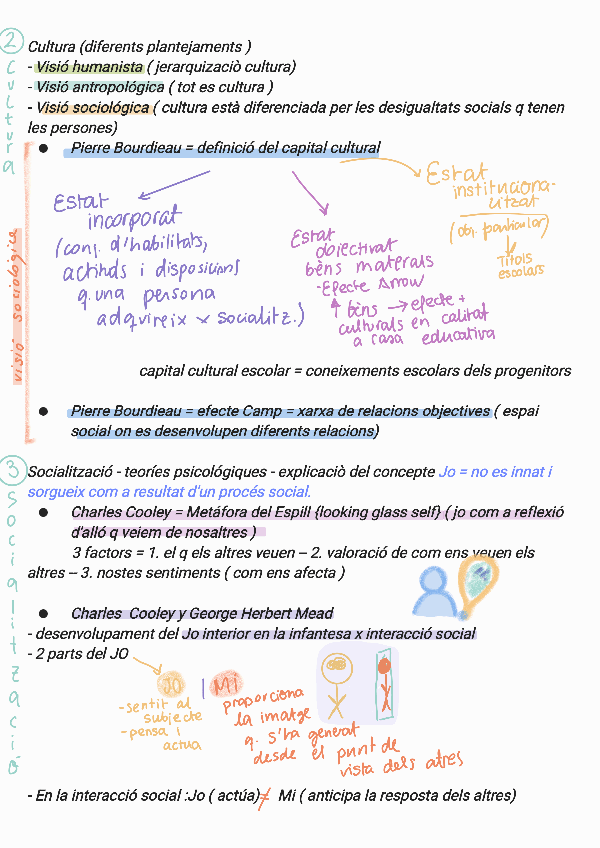 2 Cultura
Cultura (diferents plantejaments )
- Visió humanista ( jerarquizaciò cultura)
- Visió antropológica ( tot es cultura )
- Visió sociológica ( cultura està diferenciada per les desigualtats socials q tenen
les persones)
visió sociológica
● Pierre Bourdieau = definició del capital cultural
Estat
incorporat
(conj. d'habilitats,
actituds i disposicions
q. una persona
adquireix x socialitz.)
Estat
objectivat
bèns materals
-Efecte Arrow
↑ bèns → efecte +
culturals en calitat
a casa educativa
Estat
instituciona-
litzat
(obj. particular)
↓
Titols
escolars
capital cultural escolar = coneixements escolars dels progenitors
● Pierre Bourdieau = efecte Camp = xarxa de relacions objectives ( espai
social on es desenvolupen diferents relacions)
3 Socialització
Socialització - teoríes psicológiques - explicaciò del concepte Jo = no es innat i
sorgueix com a resultat d'un procés social.
● Charles Cooley = Metáfora del Espill {looking glass self} ( jo com a reflexió
d'alló q veiem de nosaltres )
3 factors = 1. el q els altres veuen – 2. valoració de com ens veuen els
altres – 3. nostes sentiments ( com ens afecta )
● Charles Cooley y George Herbert Mead
- desenvolupament del Jo interior en la infantesa x interacció social
- 2 parts del JO
JO | Mi
-sentit al
subjecte
-pensa i
actua
proporciona
la imatge
q. s'ha generat
desde el punt de
vista dels atres
- En la interacció social :Jo ( actúa) ≠ Mi ( anticipa la resposta dels altres)